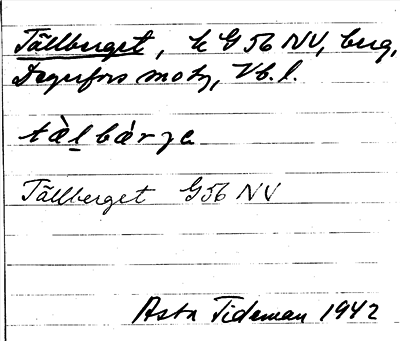 Tällberget, k G 56 NV, berg,
Degerfors socken, Vb. l.
tæ̀l bær̀ ja
Tällberget G56 NV
Asta Tideman 1942